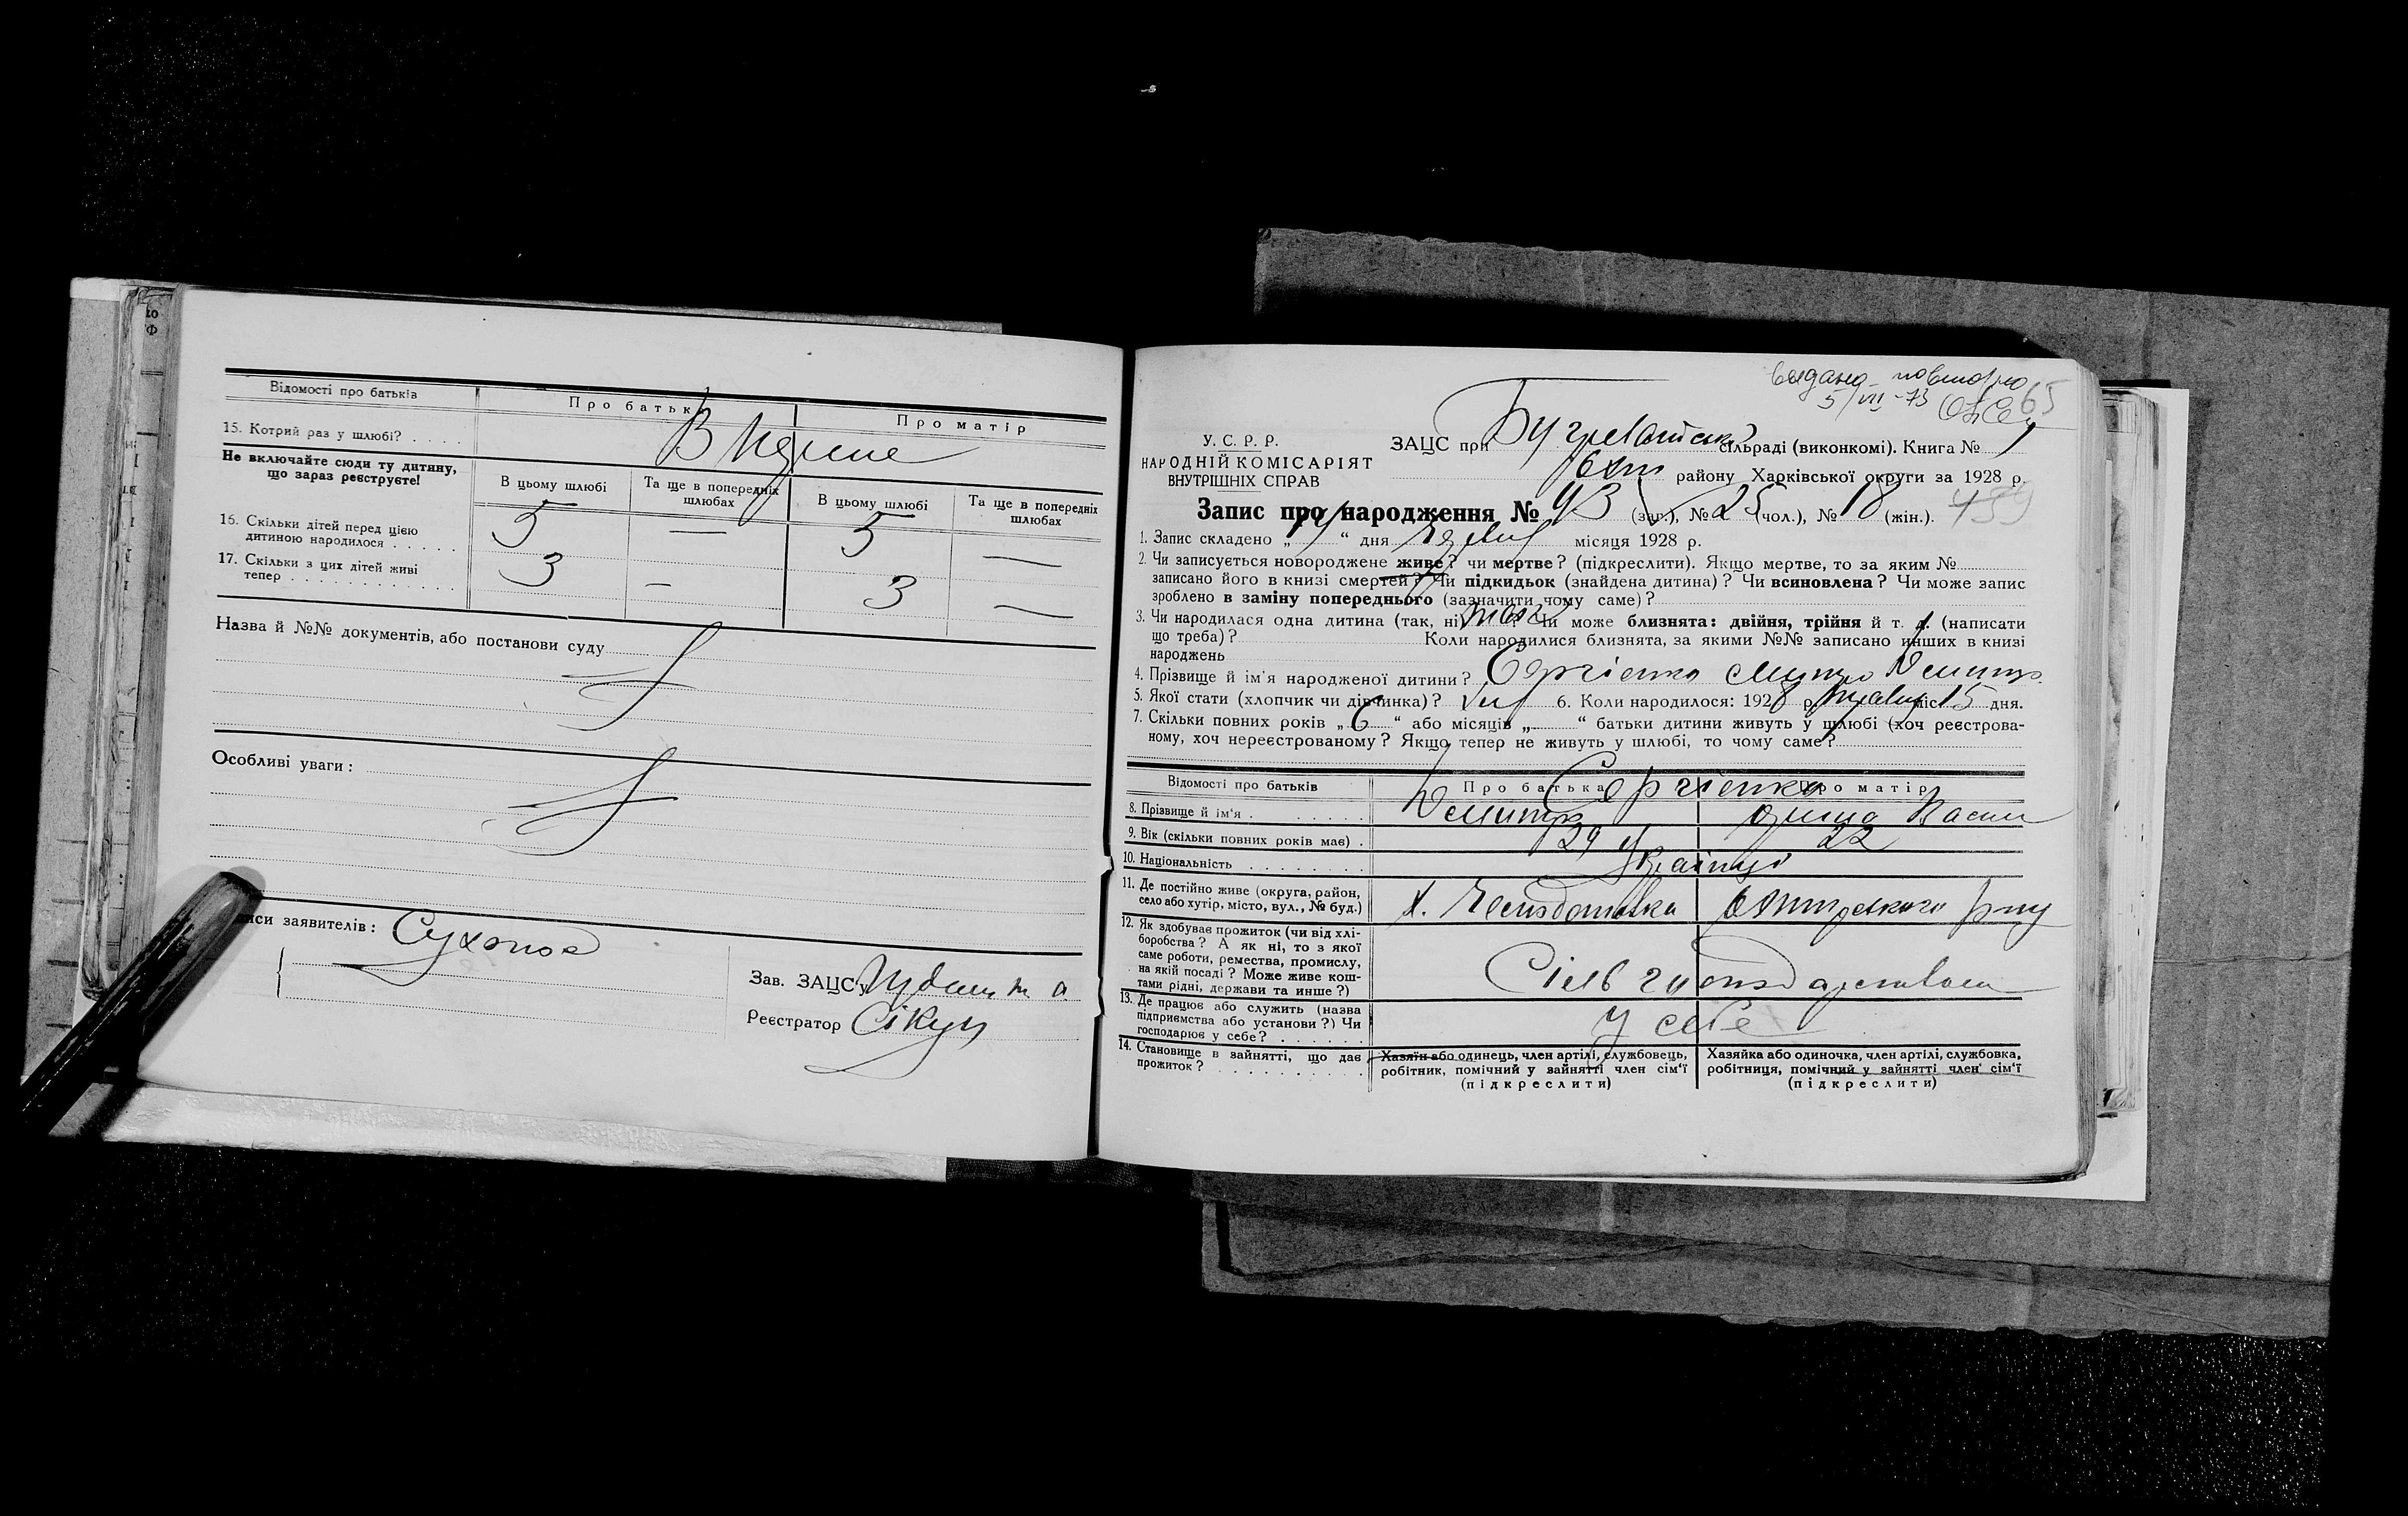 Відомості про батьків
Про батька
Про матір
15. Котрий раз у шлюбі? . . . .
Вперше
Не включайте сюди ту дитину,
що зараз реєструєте!
В цьому шлюбі
Та ще в попередніх
шлюбах
В цьому шлюбі
Та ще в попередніх
шлюбах
16. Скільки дітей перед цією
дитиною народилося . . . . .
5 — 5 —
17. Скільки з цих дітей живі
тепер . . . . . . . . . . . .
3 — 3 —
Назва й №№ документів, або постанови суду
Особливі уваги:
писи заявителів:
Зав. ЗАЦСу
Реєстратор Сікун
видано повторно
5/VII-73
65
У. С. Р. Р.
НАРОДНІЙ КОМІСАРІЯТ
ВНУТРІШНІХ СПРАВ
ЗАЦС при Бугреватській сільраді (виконкомі). Книга № 1
Охт району Харківської округи за 1928 р.
Запис про народження № 43 (заг.), № 25 (чол.), № 18 (жін.).
1. Запис складено „ “ дня місяця 1928 р.
2. Чи записується новороджене живе? чи мертве? (підкреслити). Якщо мертве, то за яким №
записано його в книзі смертей? Чи підкидьок (знайдена дитина)? Чи всиновлена? Чи може запис
зроблено в заміну попереднього (зазначити чому саме)?
3. Чи народилася одна дитина (так, ні) так Чи може близнята: двійня, трійня й т. д. (написати
що треба)? Коли народилися близнята, за якими №№ записано инших в книзі
народжень
4. Прізвище й ім'я народженої дитини? Сергієнко
5. Якої стати (хлопчик чи дівчинка)? 6. Коли народилося: 1928 р. травня міс. 15 дня.
7. Скільки повних років „ 6 “ або місяців „ “ батьки дитини живуть у шлюбі (хоч реєстрова-
ному, хоч нереєстрованому? Якщо тепер не живуть у шлюбі, то чому саме?
Відомості про батьків
Про батька
Про матір
Сергієнко
8. Прізвище й ім'я . . . . . . .
9. Вік (скільки повних років має) .
29 22
10. Національність . . . . . . . .
Українці
11. Де постійно живе (округа, район,
село або хутір, місто, вул., № буд.)
х. Охтирського р-ну
12. Як здобуває прожиток (чи від хлі-
боробства? А як ні, то з якої
саме роботи, ремества, промислу,
на якій посаді? Може живе кош-
тами рідні, держави та инше?)
13. Де працює або служить (назва
підприємства або установи?) Чи
господарює у себе? . . . . . .
У себе
14. Становище в зайнятті, що дає
прожиток? . . . . . . . . . .
Хазяїн або одинець, член артілі, службовець,
робітник, помічний у зайнятті член сім'ї
(підкреслити)
Хазяйка або одиночка, член артілі, службовка,
робітниця, помічний у зайнятті член сім'ї
(підкреслити)